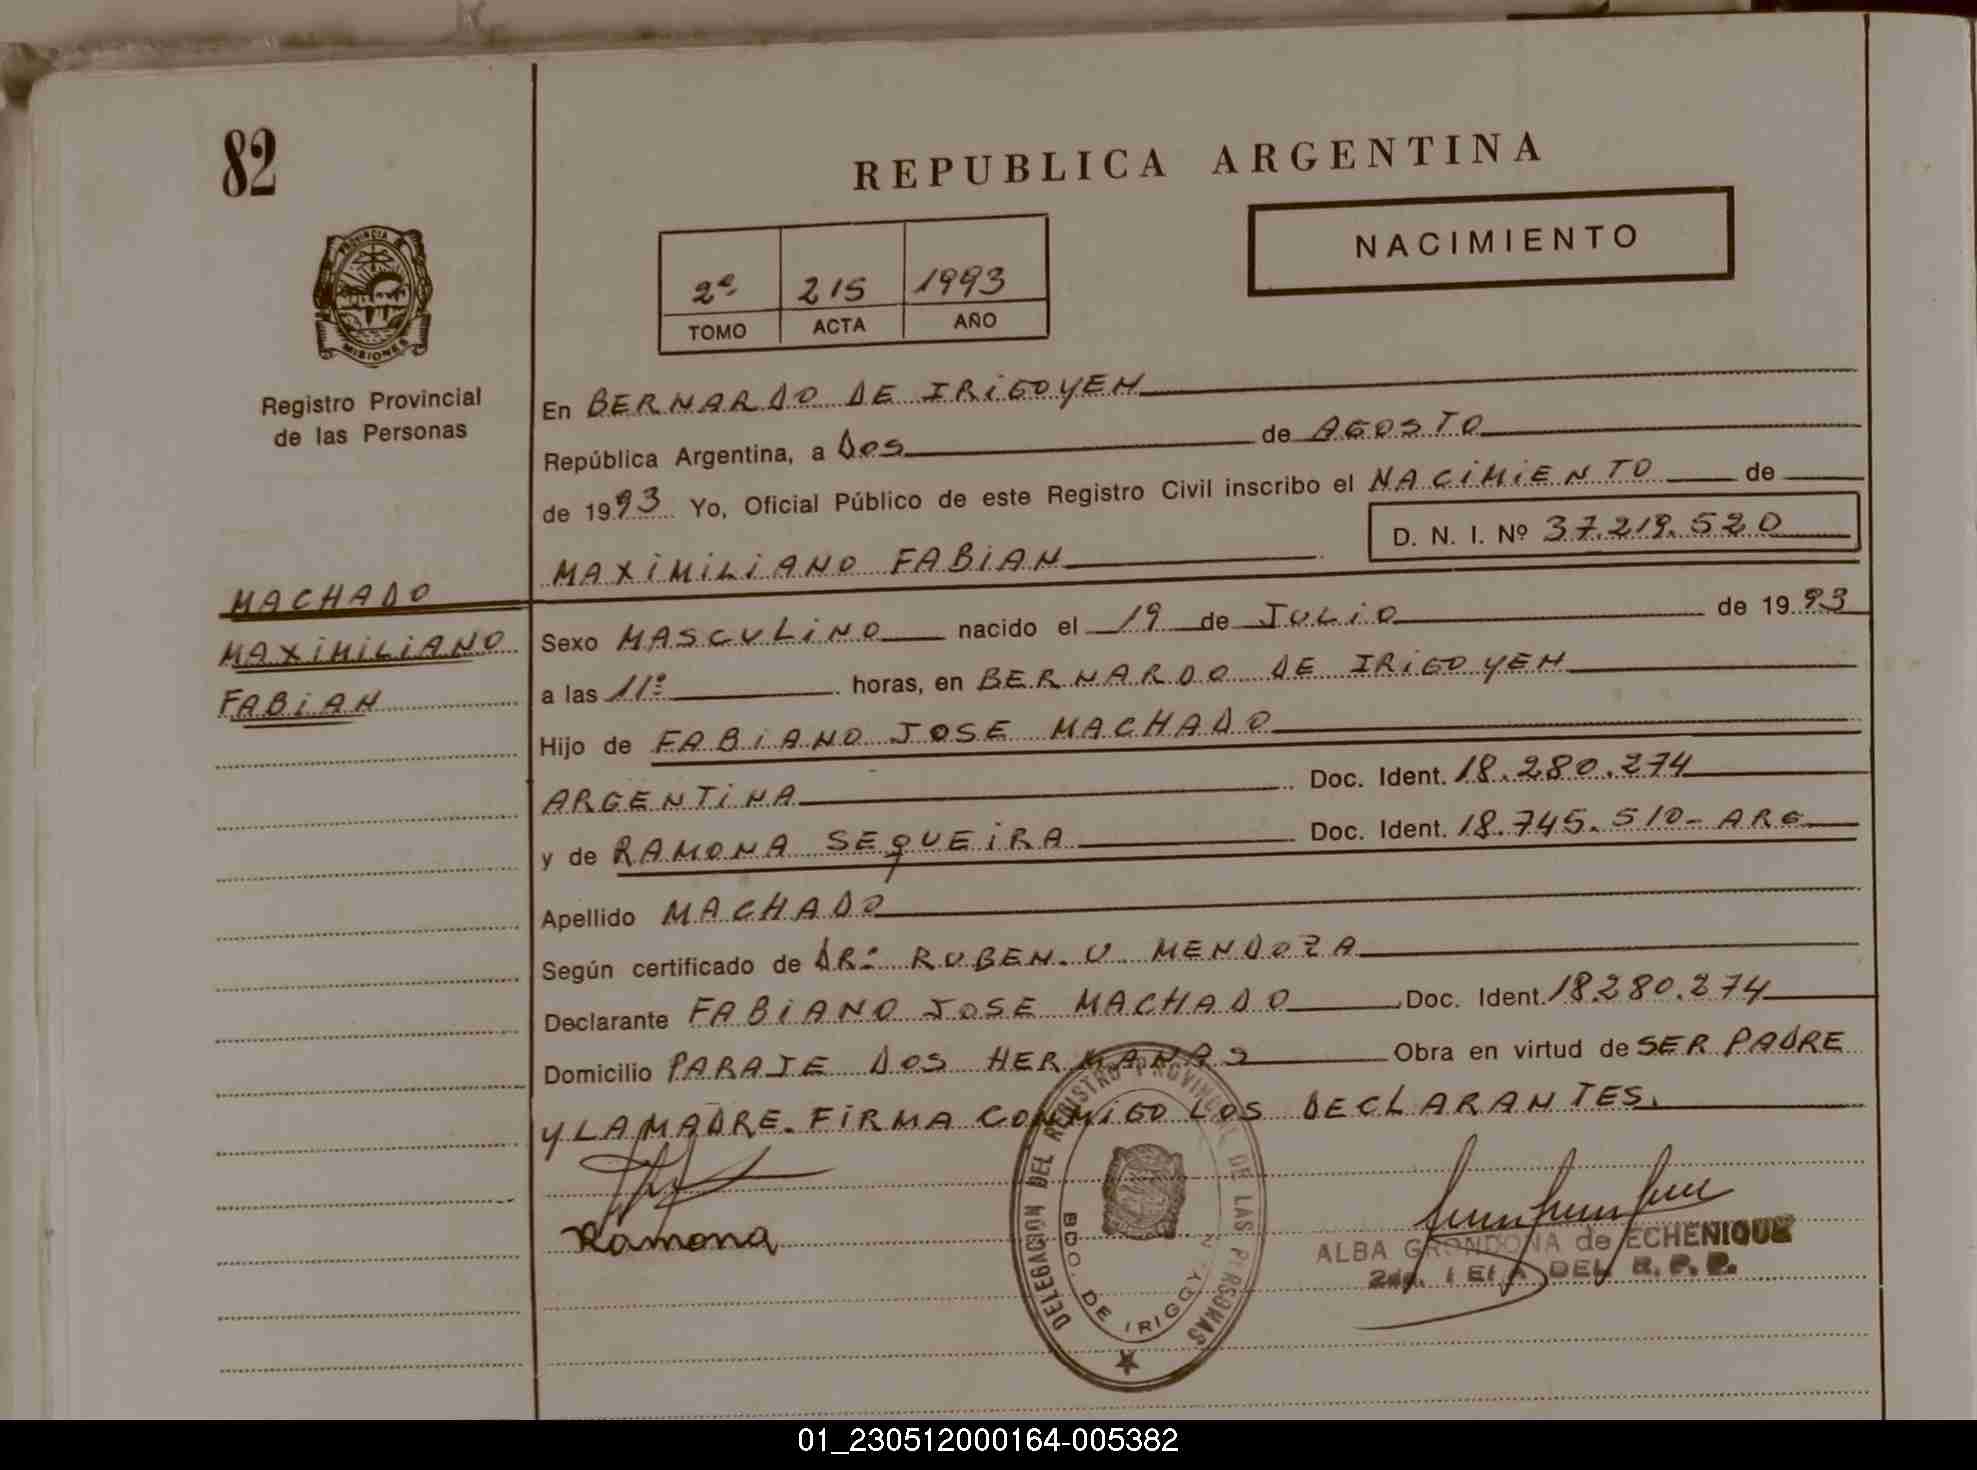 82
REPUBLICA ARGENTINA
NACIMIENTO
PROVINCIA DE
MISIONES
Registro Provincial
de las Personas
2º 215 1993
TOMO ACTA AÑO
En BERNARDO DE IRIGOYEN
República Argentina, a DOS de AGOSTO
de 1993 Yo, Oficial Público de este Registro Civil inscribo el NACIMIENTO de
D. N. I. Nº 37.219.520
MAXIMILIANO FABIAN
MACHADO
MAXIMILIANO
FABIAN
Sexo MASCULINO nacido el 19 de JULIO de 1993
a las 11º horas, en BERNARDO DE IRIGOYEN
Hijo de FABIANO JOSE MACHADO
ARGENTINA Doc. Ident. 18.280.274
y de RAMONA SEQUEIRA Doc. Ident. 18.745.510- ARG
Apellido MACHADO
Según certificado de DR: RUBEN. U. MENDOZA
Declarante FABIANO JOSE MACHADO Doc. Ident. 18280.274
Domicilio PARAJE DOS HERMANAS Obra en virtud de SER PADRE
Y LA MADRE. FIRMA CONMIGO LOS DECLARANTES.
Ramona
DELEGACION DEL REGISTRO PROVINCIAL DE LAS PERSONAS
BDO. DE IRIGOYEN
ALBA GRONDONA de ECHENIQUE
DEL R. P. P.
01_230512000164-005382